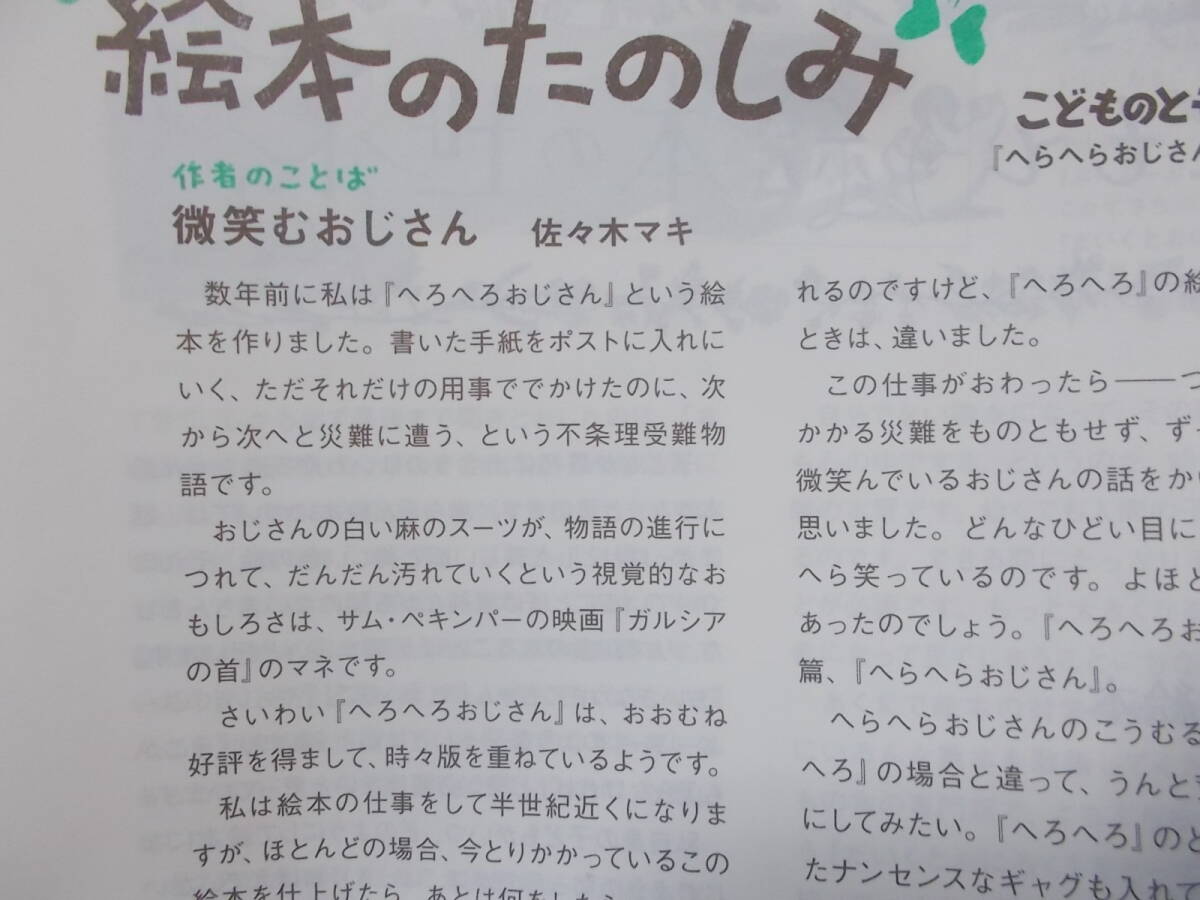 絵本のたのしみ
こどものと
『へらへらおじさん
作者のことば
微笑むおじさん　佐々木マキ
数年前に私は『へろへろおじさん』という絵
本を作りました。書いた手紙をポストに入れに
いく、ただそれだけの用事ででかけたのに、次
から次へと災難に遭う、という不条理受難物
語です。
おじさんの白い麻のスーツが、物語の進行に
つれて、だんだん汚れていくという視覚的なお
もしろさは、サム・ペキンパーの映画『ガルシア
の首』のマネです。
さいわい『へろへろおじさん』は、おおむね
好評を得まして、時々版を重ねているようです。
私は絵本の仕事をして半世紀近くになりま
すが、ほとんどの場合、今とりかかっているこの
絵本を仕上げたら、あとは何を
れるのですけど、『へろへろ』の絵
ときは、違いました。
この仕事がおわったら――つ
かかる災難をものともせず、ずっ
微笑んでいるおじさんの話をかい
思いました。どんなひどい目に
へら笑っているのです。よほど
あったのでしょう。『へろへろお
篇、『へらへらおじさん』。
へらへらおじさんのこうむる
へろ』の場合と違って、うんと
にしてみたい。『へろへろ』のと
たナンセンスなギャグも入れて